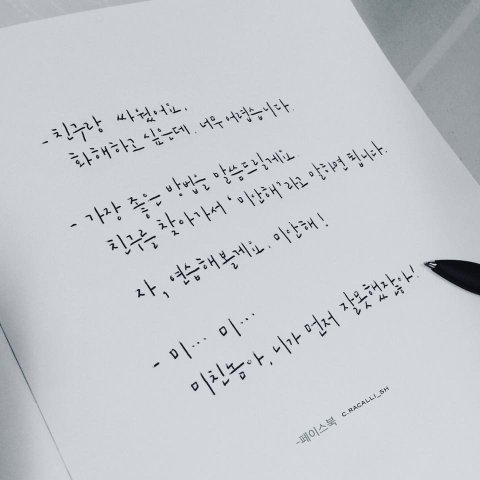 - 친구랑 싸웠어요.
화해하고 싶은데, 너무 어렵습니다.
- 가장 좋은 방법을 말씀드릴게요.
친구를 찾아가서 '미안해'라고 말하면 됩니다.
자, 연습해볼게요. 미안해!
- 미... 미...
미친놈아, 니가 먼저 잘못했잖아!
-페이스북 C.RACALLI_SH